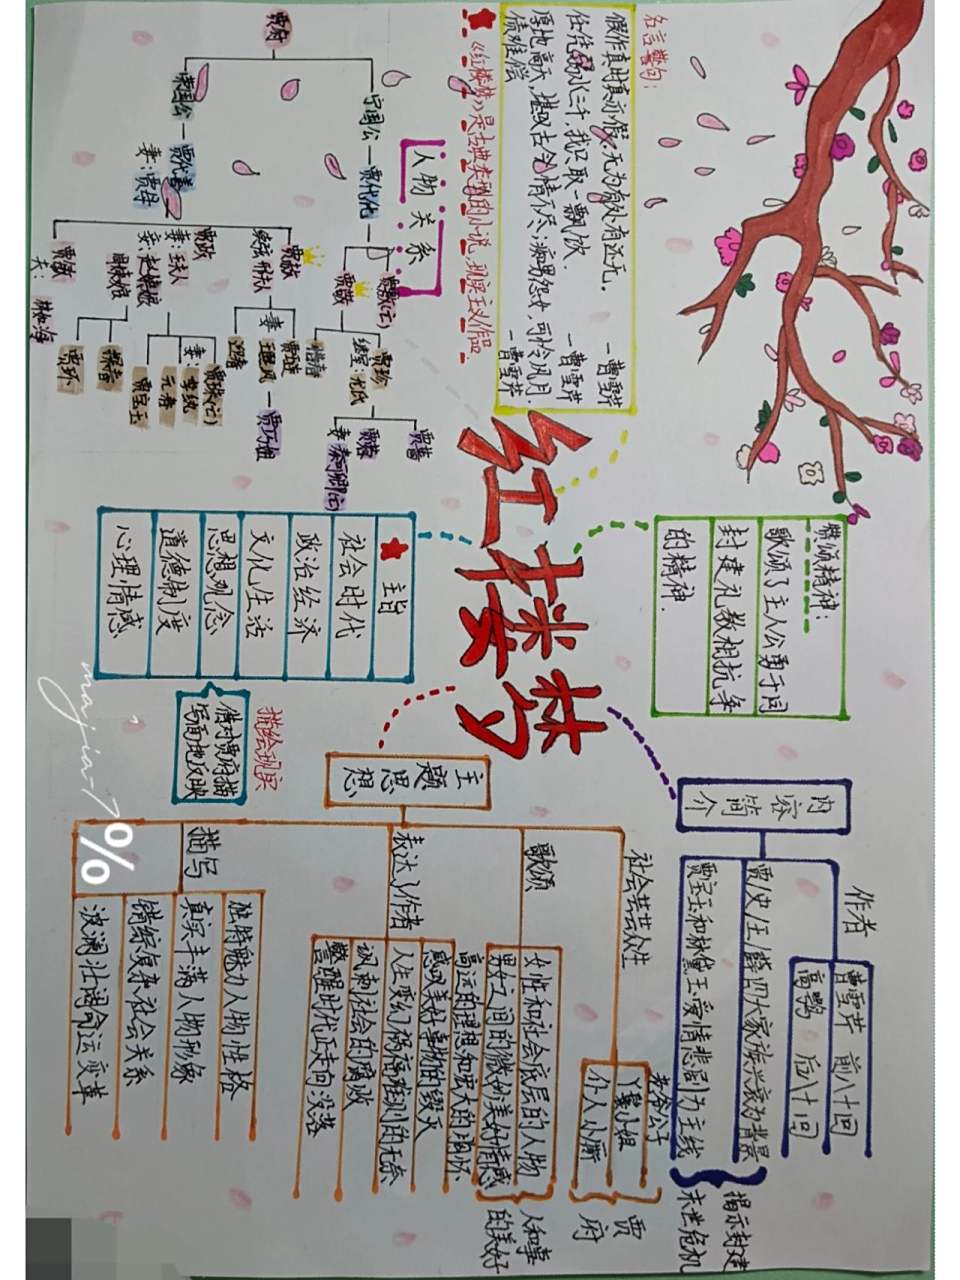 名言警句：
假作真时真亦假，无为有处有还无。
—曹雪芹
任凭弱水三千，我只取一瓢饮．
—曹雪芹
厚地高天，堪叹古今情不尽；痴男怨女，可怜风月
债难偿
—曹雪芹
★《红楼梦》是古典类型的小说，现实主义作品
人物关系
贾府
宁国公—贾代化
荣国公—贾代善
妻：贾母
贾敷(亡)
贾敬
贾珍
续室：尤氏
惜春
贾蔷
贾蓉
妻：秦可卿(亡)
贾赦
续弦邢夫人
贾琏
妻：王熙凤
贾巧姐
迎春
贾政
妻：王夫人
妾：赵姨娘
周姨娘
贾珠(亡)
妻：李纨
元春
贾宝玉
探春
贾环
贾敏
夫：林如海
红楼梦
歌颂精神：
歌颂了主人公勇于同
封建礼教相抗争
的精神．
★主旨
社会时代
政治经济
文化生活
思想观念
道德制度
心理情感
描绘现实
借对贾府描
写面地反映
内容简介
作者
曹雪芹 前八十回
高鹗 后八十回
贾/史/王/薛四大家族兴衰为背景
贾宝玉和林黛玉爱情悲剧为主线
揭示封建
末世危机
主题思想
社会芸芸众生
老爷公子
丫鬟小姐
仆人小厮
贾府
歌颂
女性和社会底层的人物
男女之间的微妙美好情感
高远的理想和宏大的胸怀
人和事
的美好
表达了作者
感叹美好事物的毁灭
人生变幻祸福难测的无奈
讽刺社会的腐败
警醒时代正走向没落
描写
独特魅力人物性格
真实丰满人物形象
错综复杂社会关系
波澜壮阔命运变革
majia-7%